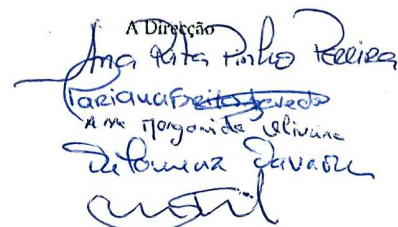 A Direcção
Ana Rita Pinho Pereira
Mariana Freitas Azevedo
Ana Margarida Oliveira
Filomena Tavares